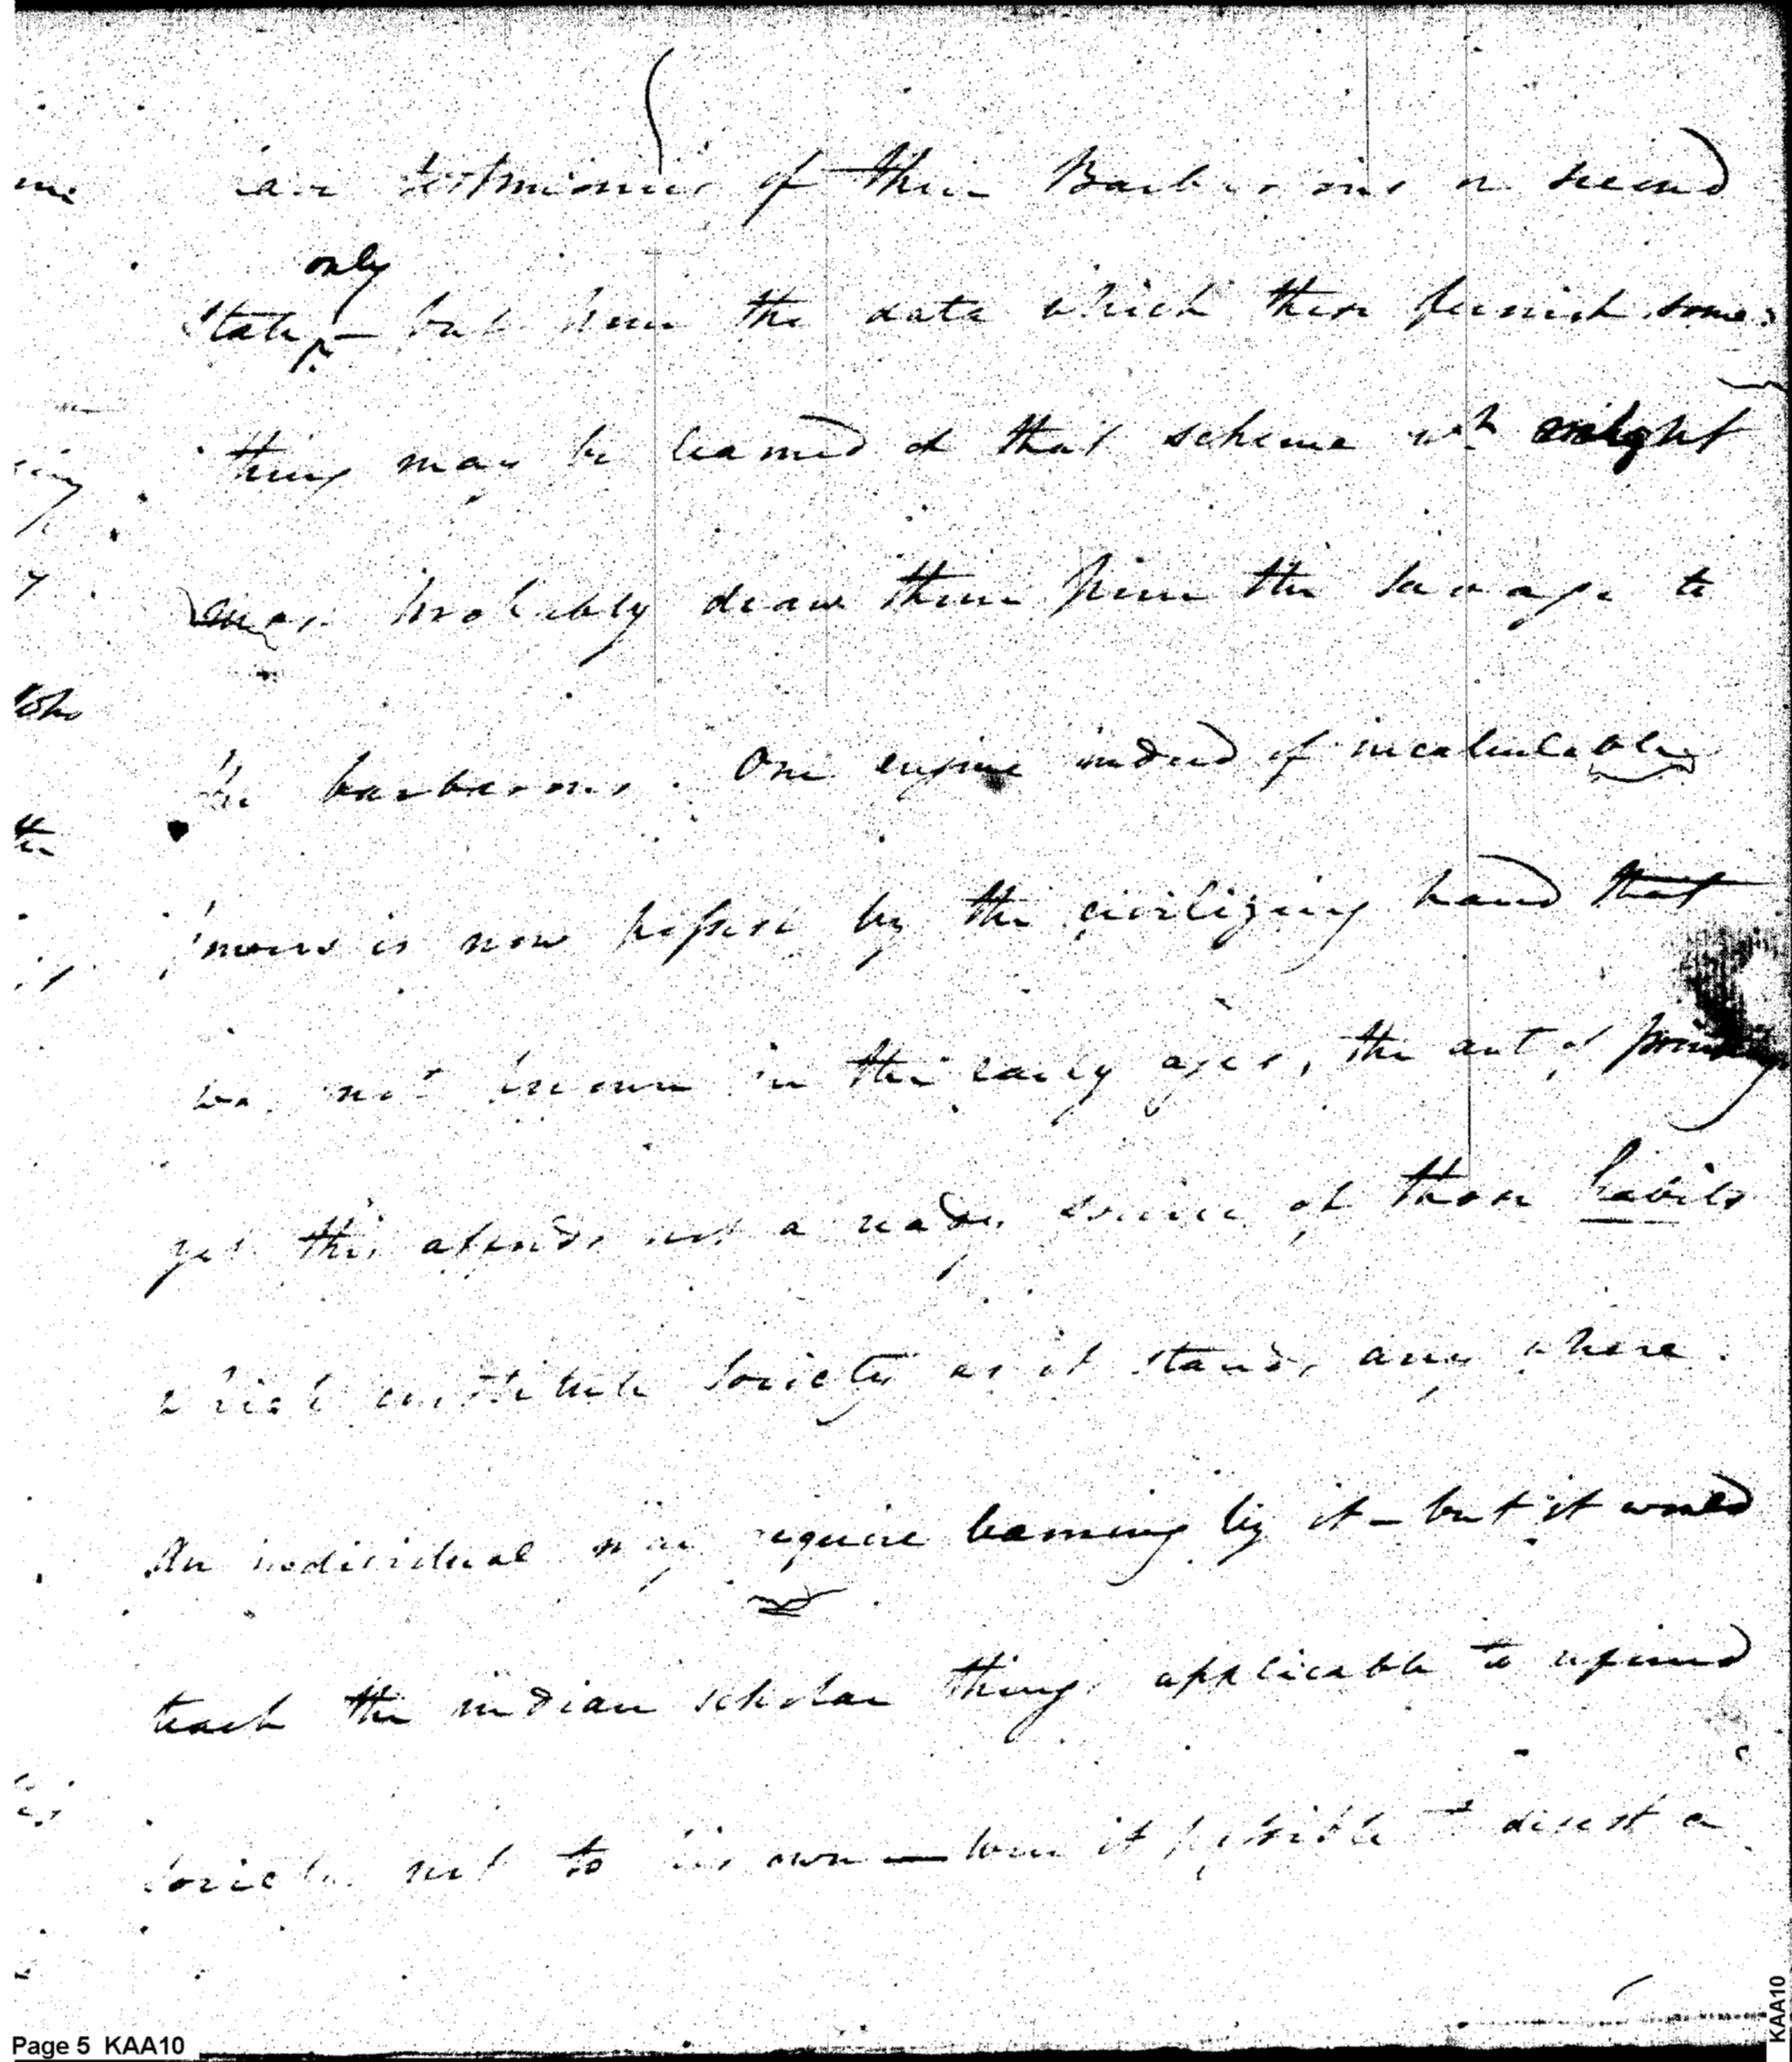 testimonies of their Barbarous or second
only
state – but from the data which these furnish some=
thing may be learned of that scheme wh might
probably draw them from the savage to
the barbarous. One engine indeed of incalculable
power is now possest by the civilizing hand that
was not known in the early ages, the art of printing
yet this affords not a ready source of those habits
which constitute Society as it stands any where.
An individual may acquire learning by it – but it would
teach the indian scholar things applicable to refined
society not to his own – were it possible to divest a
Page 5 KAA10
KAA10